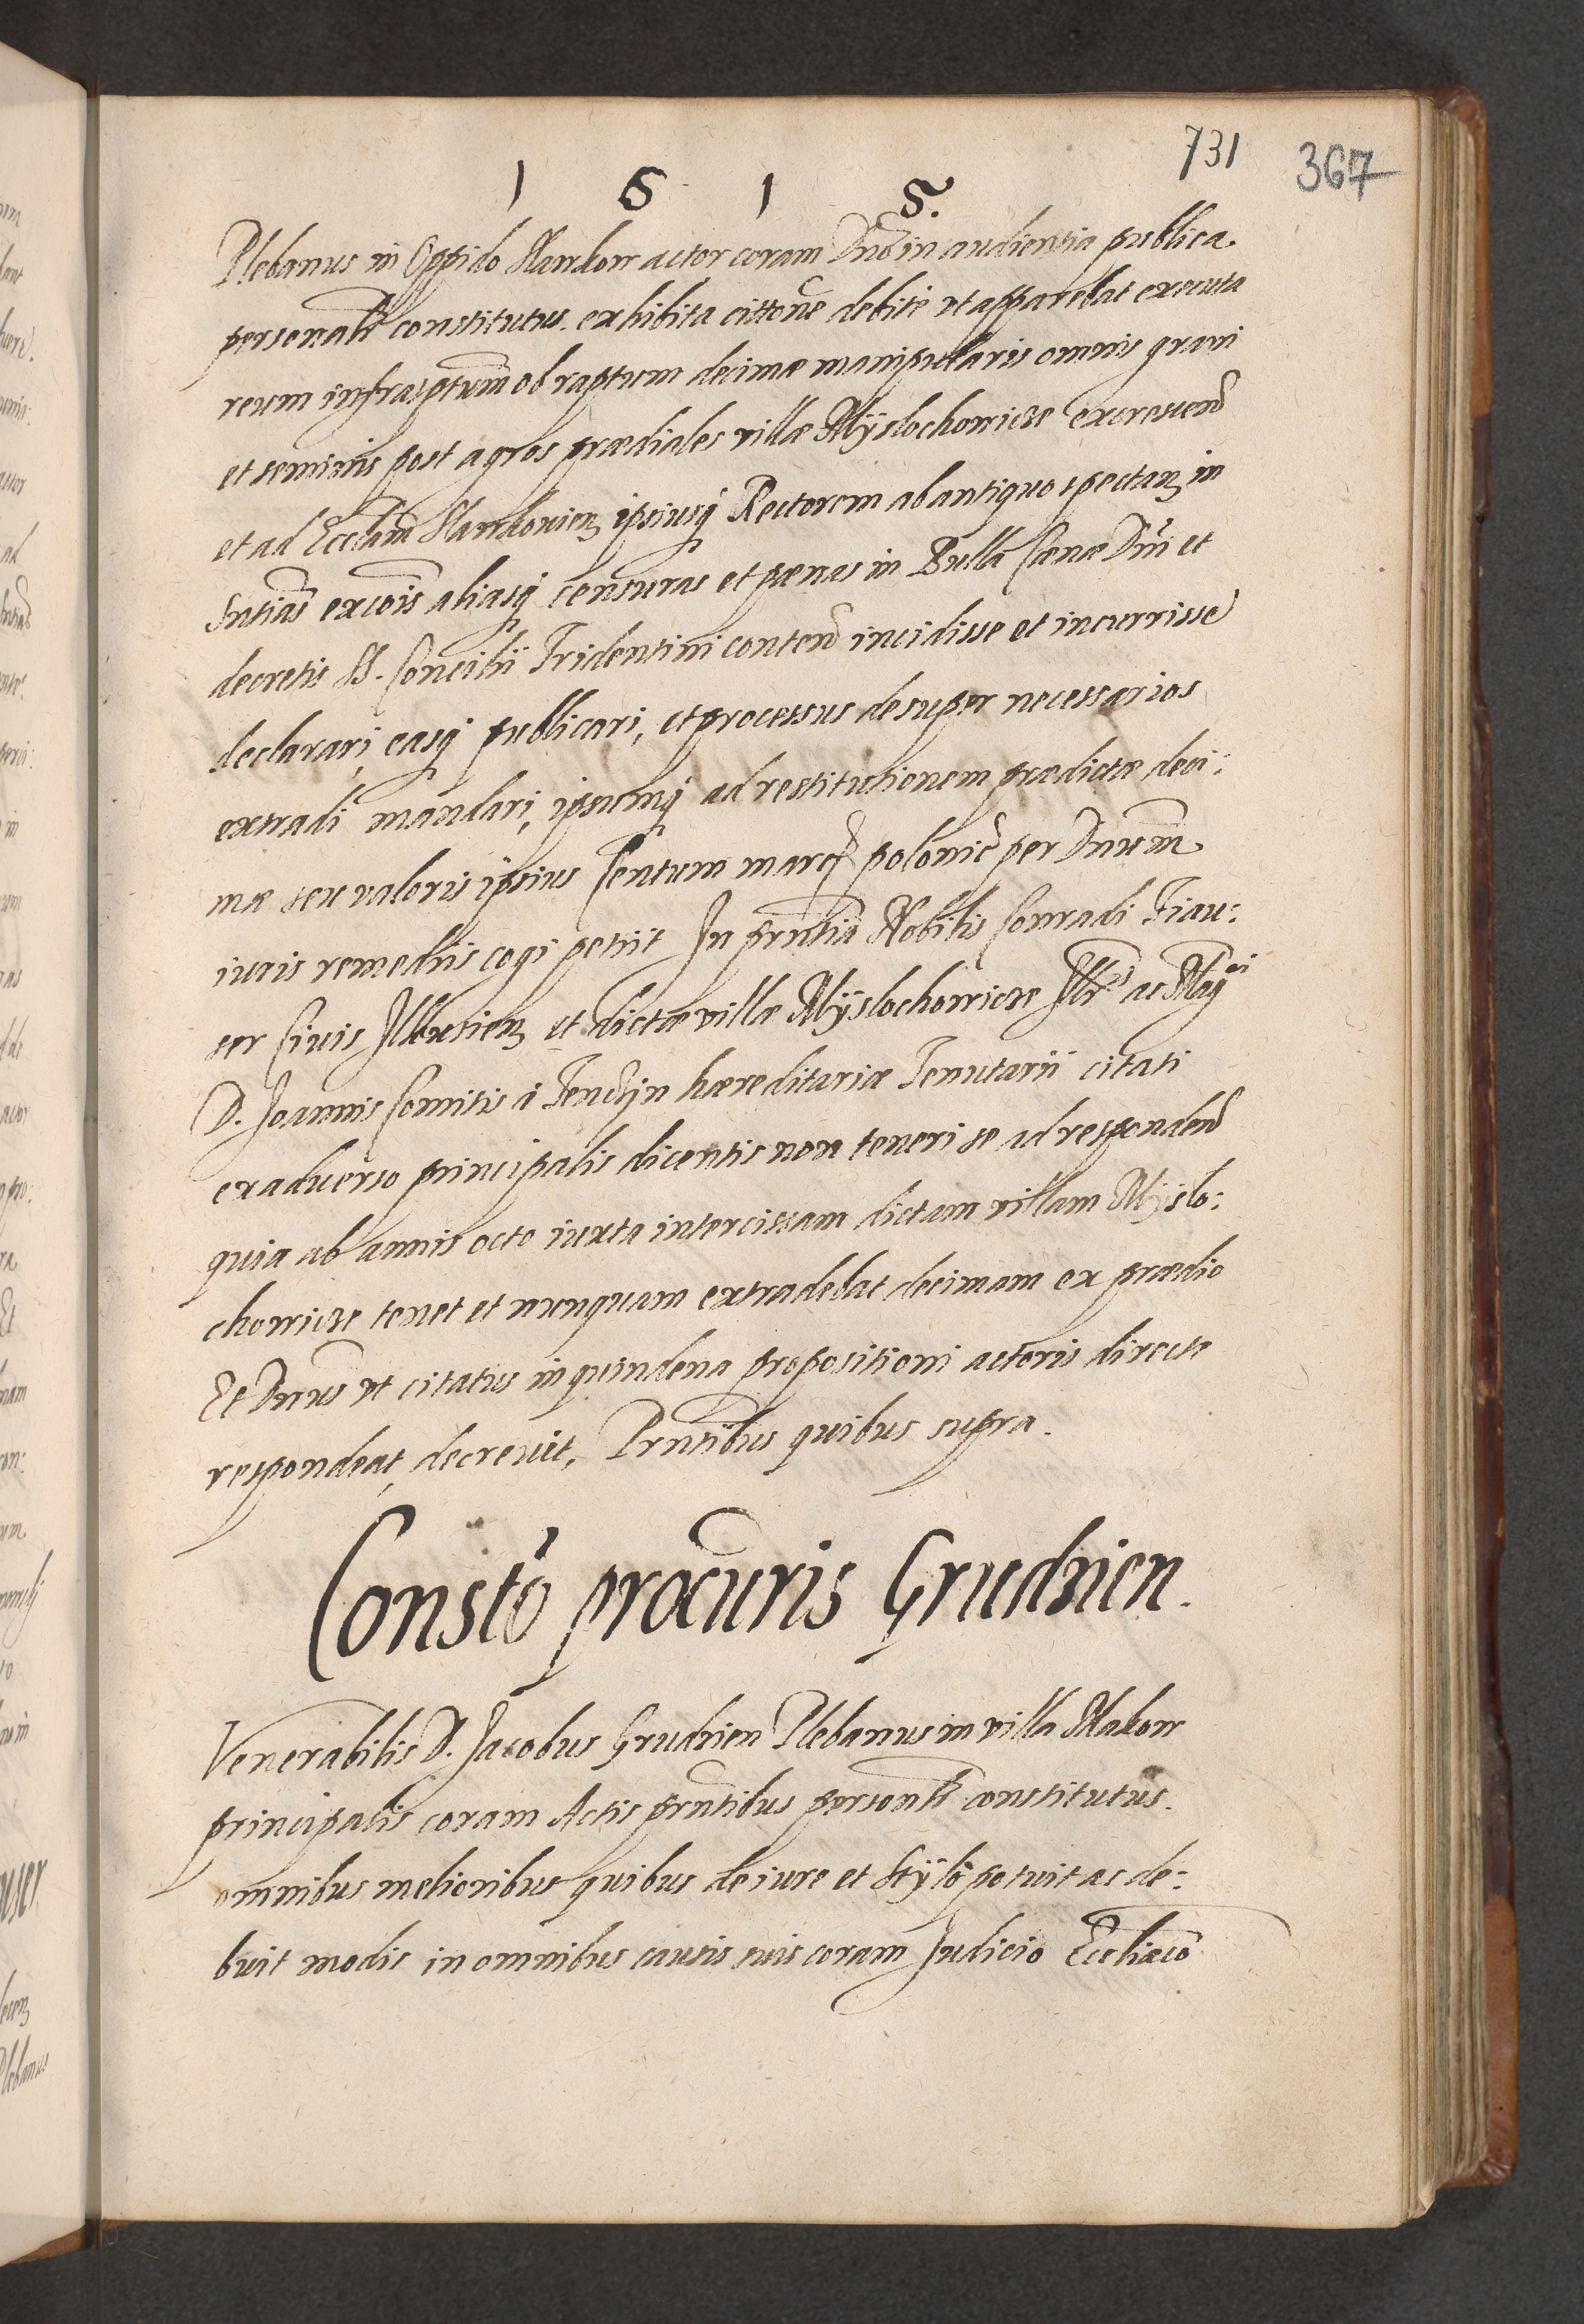 731 367
1 6 1 5.
Plebanus in Oppido Slawkow actor coram Dno in audientia publica
personalr constitutus. exhibita cittone debite ut apparebat executa
reum infrasptum ob raptum decimæ manipularis omnis grani
et seminis post agros prædiales villæ Mÿslochowicze excrescend
et ad Ecclam Slawkovien ipsiusq Rectorem ab antiquo spectan in
Sntias excois aliasq censuras et pænas in Bulla Cænæ Dni et
decretis SS. Concilii Tridentini conten incidisse et incurrisse
declarari, easq publicari, et processus desuper necessarios
extradi mandari, ipsumq ad restitutionem prædictæ deci:
mæ seu valoris ipsius Centum marcq polonic per Dnum
iuris remediis cogi petiit In prntia Nobilis Conradi Fiau:
ser Civis Ilkusien et dictæ villæ Mÿslochowicze Illris ac Mgci
D. Joannis Comitis à Tenczÿn hæreditariæ Tenutarii citati
ex adverso principalis dicentis non teneri se ad respondend
quia ab annis octo iuxta intercisam dictam villam Mÿslo:
chowicze tenet et nunquam extradebat decimam ex prædio
Et Dnus ut citatus in quindena propositioni actoris directe
respondeat, decrevit, Prntibus quibus supra.
Constō procuris Grudzien.
Venerabilis D. Jacobus Grudzien Plebanus in villa Makow
principalis coram Actis prntibus personlr constitutus.
omnibus melioribus quibus de iure et stÿlo potuit ac de:
buit modis in omnibus causis suis coram Judicio Eccliaco